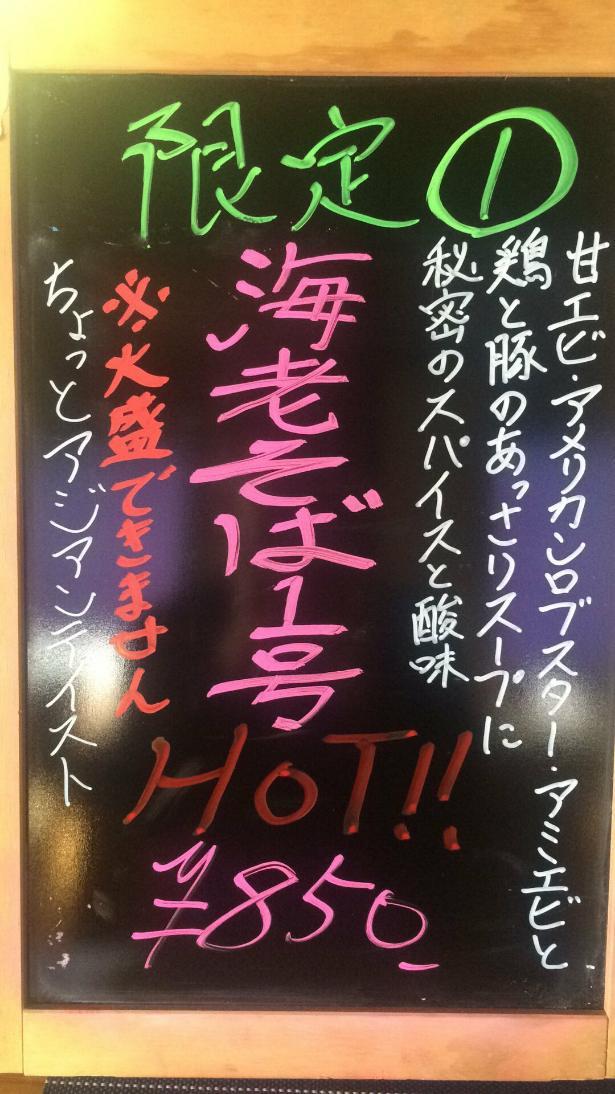 限定①
甘エビ・アメリカンロブスター・アミエビと
鶏と豚のあっさりスープに
秘密のスパイスと酸味
海老そば1号
※大盛できません
ちょっとアジアンテイスト
HOT!!
¥850_